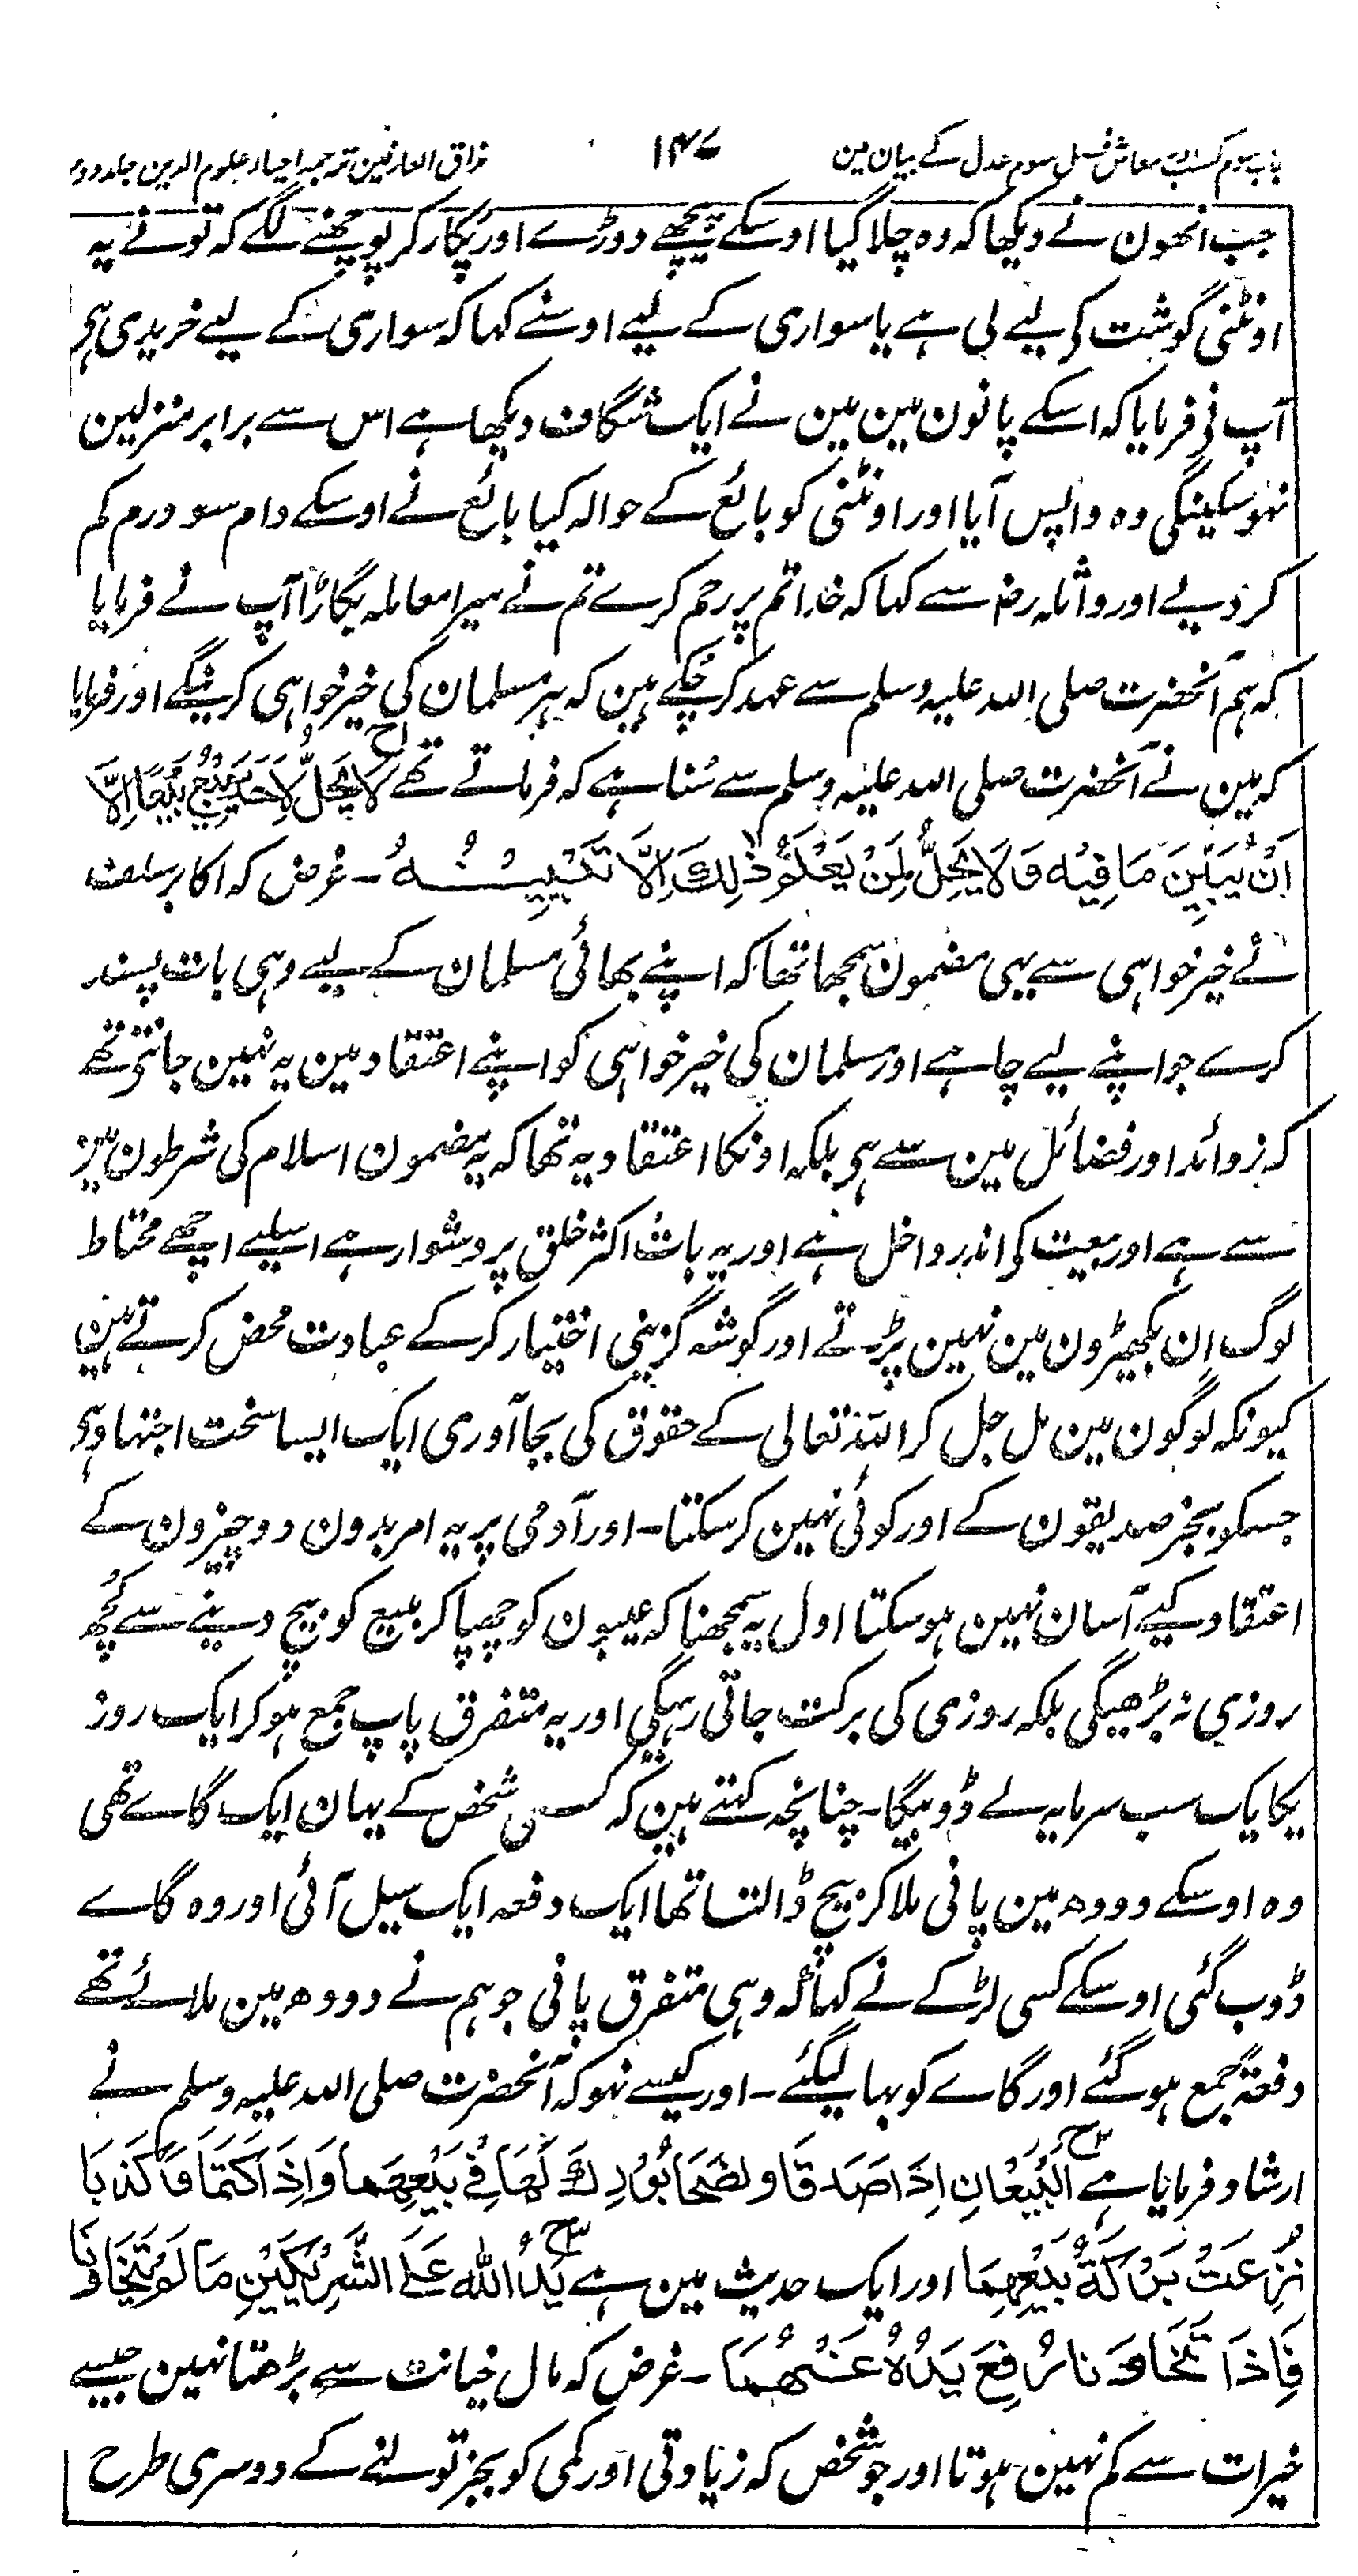 باب سوم کسب اور معاش فصل سوم عدل کے بیان مین ۱۴۷ مذاق العارفین ترجمہ احیاء علوم الدین جلد دوم
جب انھون نے دیکھا کہ وہ چلا گیا اوسکے پیچھے دوڑے اور پکار کر پوچھنے لگے کہ تو نے یہ
اونٹنی گوشت کے لیے لی ہے یا سواری کے لیے اوسنے کہا کہ سواری کے لیے خریدی ہے
آپ نے فرمایا کہ اسکے پانون مین مین نے ایک شگاف دیکھا ہے اس سے برابر منزلین
نہو سکینگی وہ واپس آیا اور اونٹنی کو بائع کے حوالہ کیا بائع نے اوسکے دام سو درم کم
کر دیے اور واثلہ رض سے کہا کہ خدا تم پر رحم کرے تم نے میرا معاملہ بگاڑا آپ نے فرمایا
کہ ہم آنحضرت صلی اللہ علیہ وسلم سے عہد کر چکے ہین کہ ہر مسلمان کی خیر خواہی کرینگے اور فرمایا
کہ مین نے آنحضرت صلی اللہ علیہ وسلم سے سُنا ہے کہ فرماتے تھے لَا يَحِلُّ لِاَحَدٍ يَبِيعُ بَيْعًا اِلَّا
اَنْ يُبَيِّنَ مَا فِيْهِ وَلَا يَحِلُّ لِمَنْ يَعْلَمُ ذٰلِكَ اِلَّا تَبْيِيْنُهُ ۔ غرض کہ اکابر سلف
نے خیر خواہی سے یہی مضمون سمجھا تھا کہ اپنے بھائی مسلمان کے لیے وہی بات پسند
کرے جو اپنے لیے چاہے اور مسلمان کی خیر خواہی کو اپنے اعتقاد مین یہ نہین جانتے تھے
کہ زوائد اور فضائل مین سے ہے بلکہ اونکا اعتقاد یہ تھا کہ یہ مضمون اسلام کی شرطون مین
سے ہے اور بیعت کے اندر داخل ہے اور یہ بات اکثر خلق پر دشوار ہے اسلیے اچھے محتاط
لوگ ان بکھیڑون مین نہین پڑتے اور گوشہ گزینی اختیار کرکے عبادت محض کرتے ہین
کیونکہ لوگون مین مل جل کر اللہ تعالی کے حقوق کی بجا آوری ایک ایسا سخت اجتہاد ہے
جسکو بجز صدیقون کے اور کوئی نہین کر سکتا ۔ اور آدمی پر یہ امر بدون دو چیزون کے
اعتقاد کیے آسان نہین ہو سکتا اول یہ سمجھنا کہ عیبون کو چھپا کر مبیع کو بیچ دینے سے کچھ
روزی نہ بڑھیگی بلکہ روزی کی برکت جاتی رہیگی اور یہ متفرق پاپ جمع ہو کر ایک روز
یکایک سب سرمایہ لے ڈوبیگا ۔ چنانچہ کہتے ہین کہ کسی شخص کے یہان ایک گاے تھی
وہ اوسکے دودھ مین پانی ملا کر بیچ ڈالتا تھا ایک دفعہ ایک سیل آئی اور وہ گاے
ڈوب گئی اوسکے کسی لڑکے نے کہا کہ وہی متفرق پانی جو ہم نے دودھ مین ملائے تھے
دفعۃً جمع ہو گئے اور گاے کو بہا لیگئے ۔ اور کیسے نہو کہ آنحضرت صلی اللہ علیہ وسلم نے
ارشاد فرمایا ہے اَلْبَيِّعَانِ اِذَا صَدَقَا وَنَصَحَا بُوْرِكَ لَهُمَا فِىْ بَيْعِهِمَا وَاِذَا كَتَمَا وَكَذَبَا
نُزِعَتْ بَرَكَةُ بَيْعِهِمَا اور ایک حدیث مین ہے يَدُ اللّٰهِ عَلَى الشَّرِيْكَيْنِ مَا لَمْ يَتَخَاوَنَا
فَاِذَا تَخَاوَنَا رُفِعَ يَدُهُ عَنْهُمَا ۔ غرض کہ مال خیانت سے بڑھتا نہین جیسے
خیرات سے کم نہین ہوتا اور جو شخص کہ زیادتی اور کمی کو بجز تولنے کے دوسری طرح